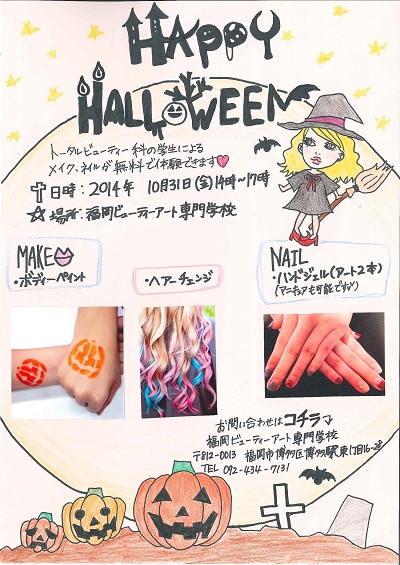 HAPPY
HALLOWEEN
トータルビューティー科の学生による
メイク、ネイルが無料で体験できます♥
日時：2014年 10月31日(金)14時～17時
☆場所：福岡ビューティーアート専門学校
MAKE
・ボディーペイント
・ヘアーチェンジ
NAIL
・ハンドジェル(アート2本)
(マニキュアも可能です♡)
お問い合わせはコチラ↓
福岡ビューティーアート専門学校
〒812-0013 福岡市博多区博多駅東1丁目16-28
TEL 092-434-7131